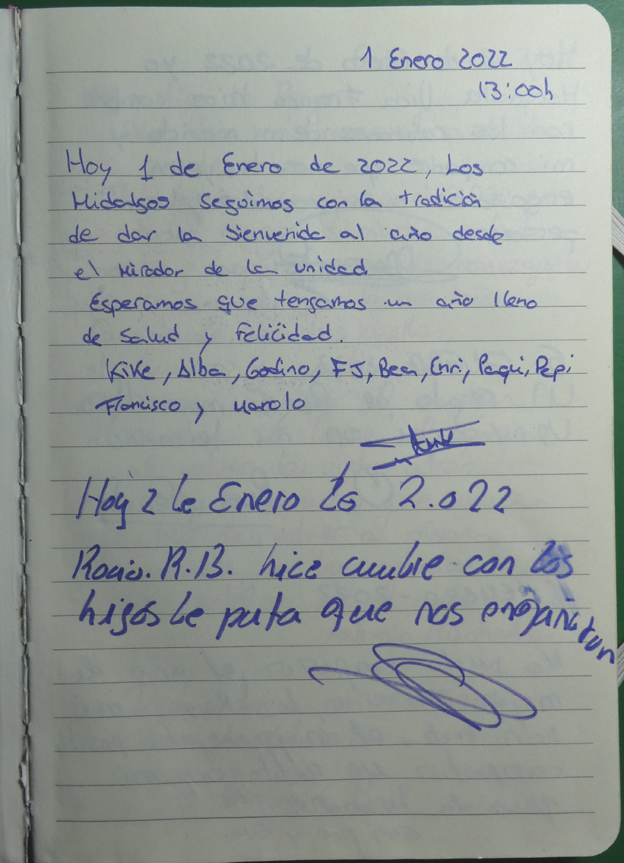 1 Enero 2022
13:00h
Hoy 1 de Enero de 2022, Los
Hidalgos seguimos con la tradición
de dar la bienvenida al año desde
el Mirador de la unidad.
Esperamos que tengamos un año lleno
de salud y felicidad.
Kike, Alba, Godino, FJ, Bea, Enri, Paqui, Pepi
Francisco y Marolo
Hoy 2 de Enero de 2.022
Rocio. R.B. hice cumbre con los
hijos de puta que nos engañaron